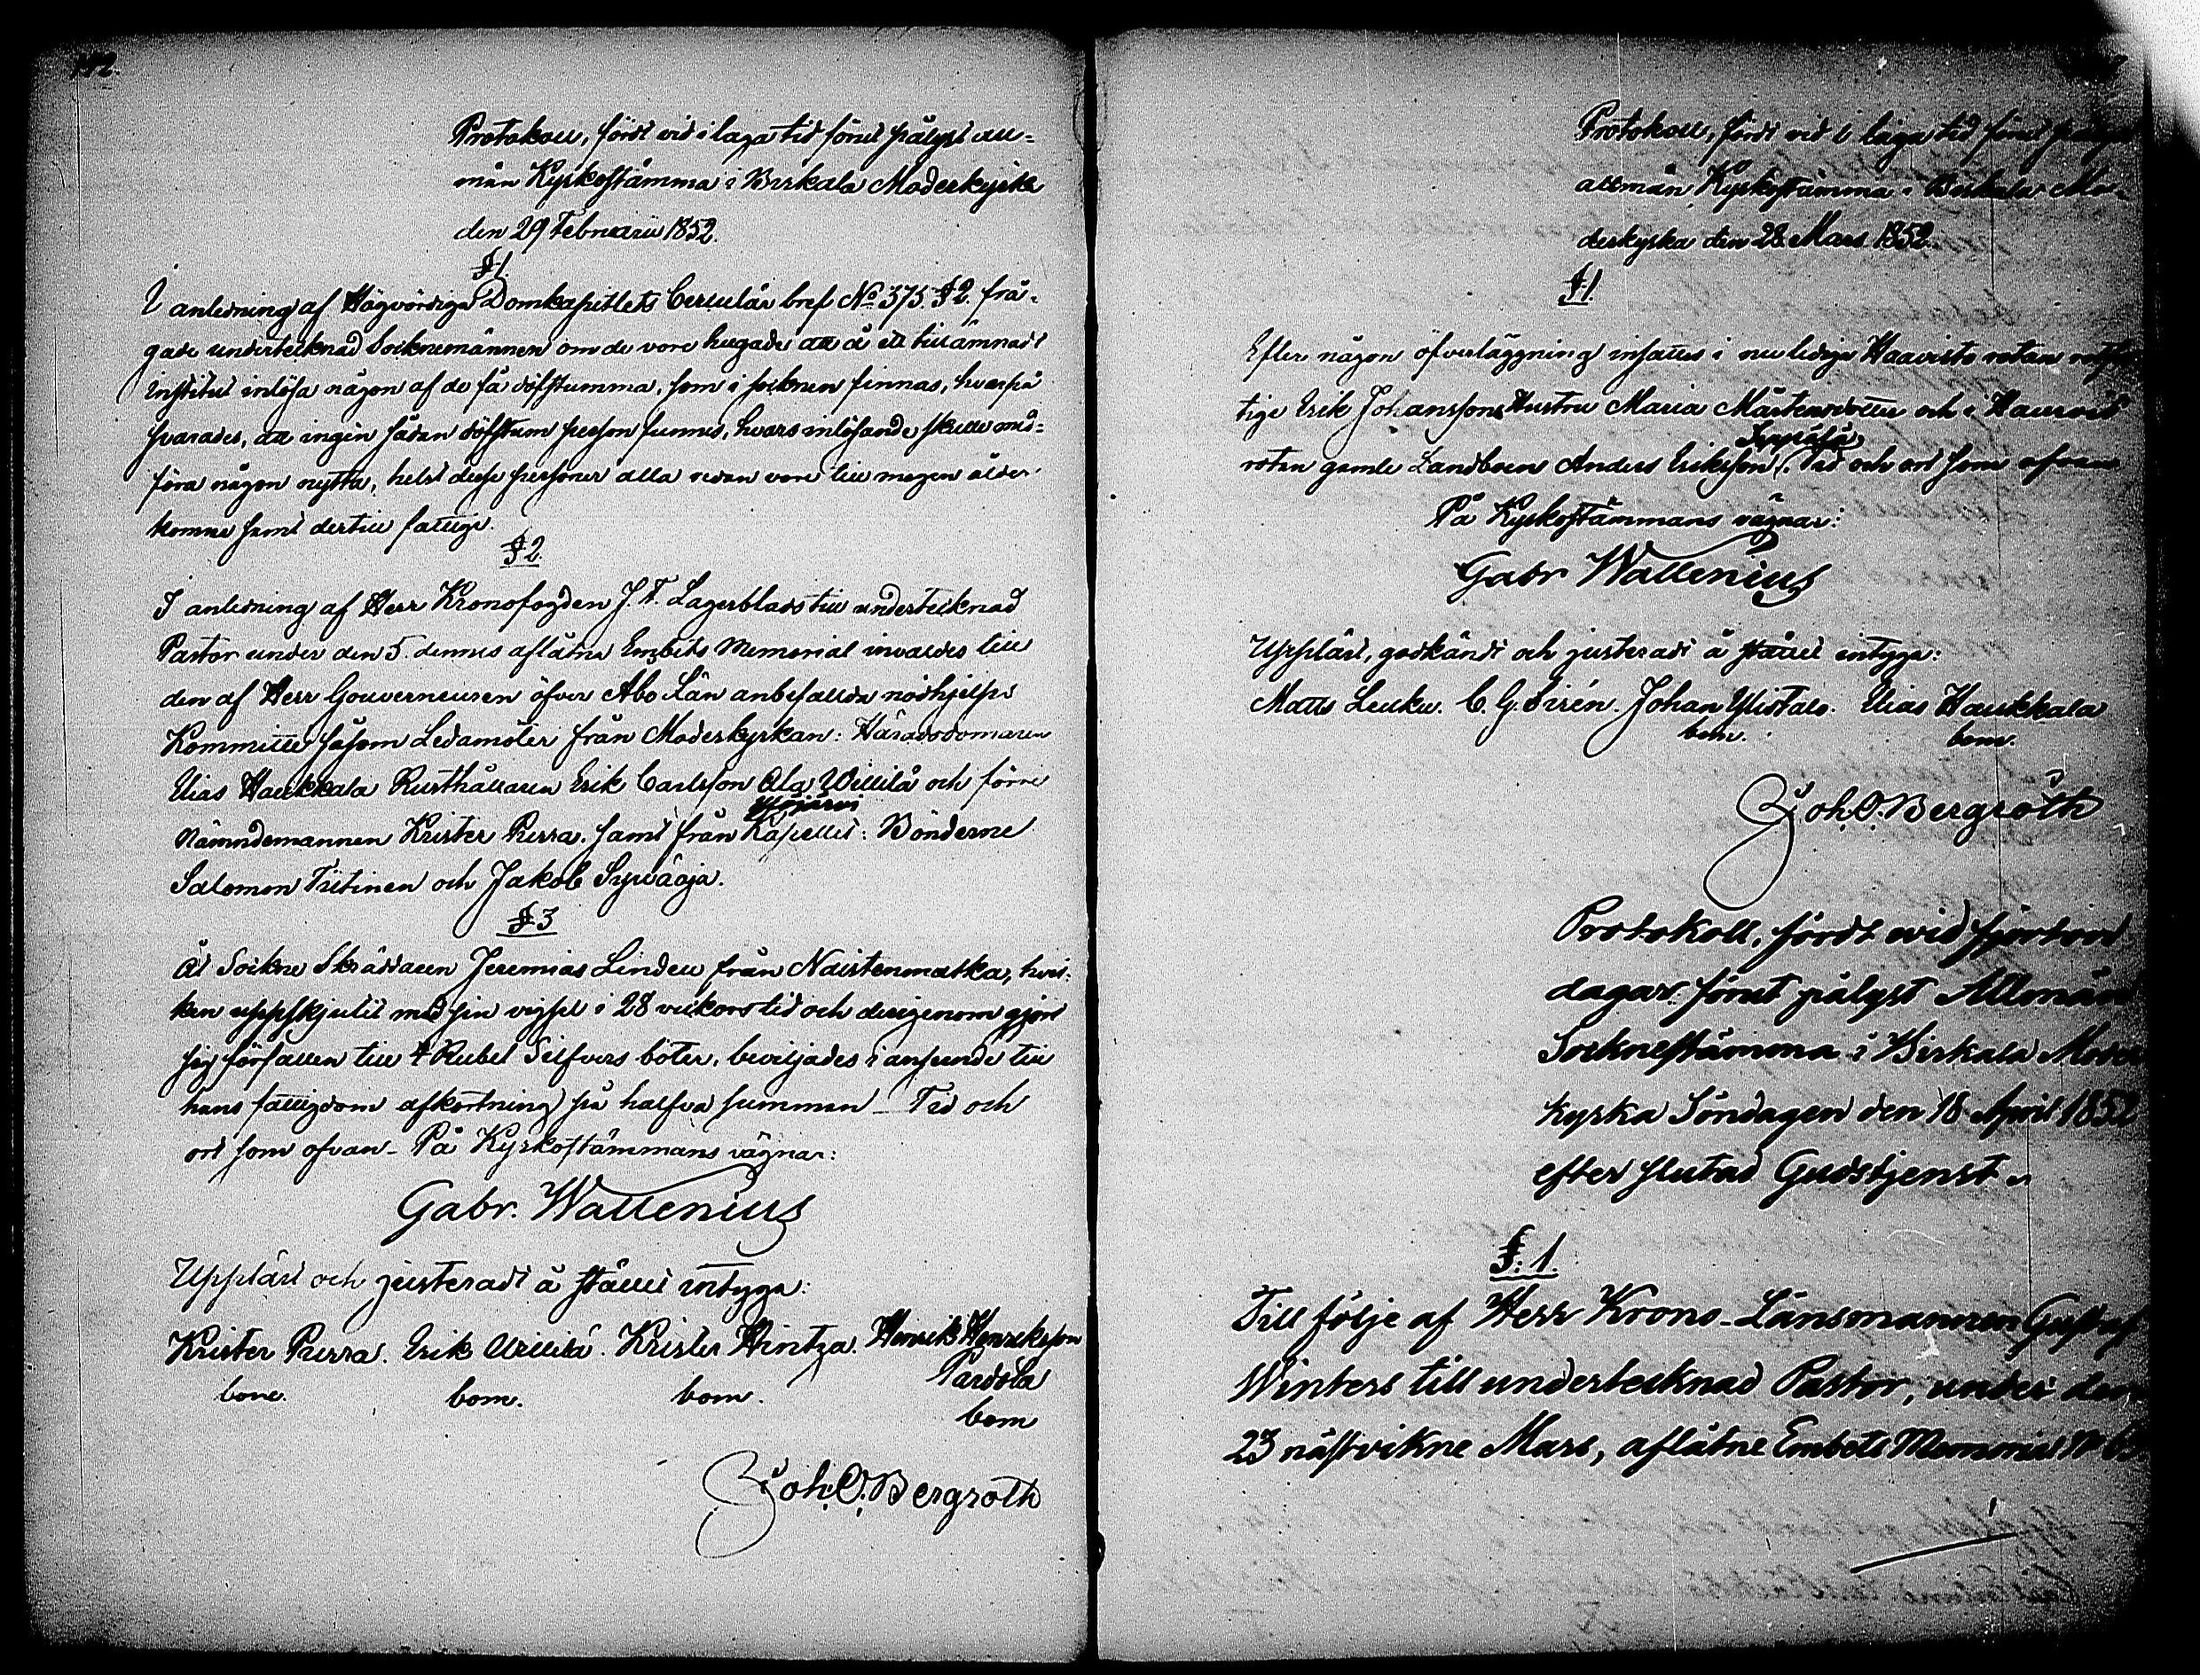 142.
Protokoll, fördt vid i laga tid förut pålyst all-
män Kyrkostämma i Birkala Moderkyrka
den 29 Februarii 1852.
§ 1.
I anledning af Högvördiga Domkapitlets Cerculär bref No 375 § 2. frå-
gade undertecknad Socknemännen om de vore hugade att å ett tillämnadt
institut inlösa någon af de få döfstumma, som i socknen finnas, hvarpå
svarades, att ingen sådan döfstum person funnes, hvars inlösande skulle med-
föra någon nytta, helst desse personer alla redan vore till mogen ålder
komne samt dertill fattige.
§ 2.
I anledning af Herr Kronofogden J. F. Lagerblads till undertecknad
Pastor under den 5. dennes aflåtna Embets Memorial invaldes till
den af Herr Gouverneuren öfver Åbo Län anbefallda nödhjelps
Kommitté såsom Ledamöter från Moderkyrkan: Häradsdomaren
Elias Haukkala Rusthållaren Erik Carlsson Ala Willilä och förre
Nämndemannen Krister Pirra. samt från Ylöjärvi Kapellet: Bönderne
Salomon Tiitinen och Jakob Sywäoja.
§ 3
At Sockne Skräddaren Jeremias Lindell från Naistenmatka, hvil-
ken uppskjutit med sin vigsel i 28 veckors tid och derigenom gjort
sig förfallen till 4 Rubel Silfvers böter, beviljades i anseende till
hans fattigdom afkortning på halfva summan. Tid och
ort som ofvan. På Kyrkostämmans vägnar:
Gabr. Wallenius
Uppläst och justeradt å stället intyga:
Krister Pirra. Erik Willilä. Krister Hintza. Henrik Henriksson
Pardola
bom. bom. bom.
bom
Joh. O. Bergroth
Protokoll, fördt vid i laga tid förut pålyst
allmän Kyrkostämma i Birkala Mo-
derkyrka den 28 Mars 1852.
§ 1.
Efter någon öfverläggning insattes i nu lediga Haavisto rotan
tige Erik Johanssons Hustru Maria Mårtensdotter och i
rotan gamle Landboen Anders Eriksson Tid och ort som ofvan
På Kyrkostämmans vägnar:
Gabr Wallenius
Uppläst, godkändt och justeradt å stället intyga:
Matts Leuku. C. G. Sirén. Johan Ylistalo. Elias Haukkala
bom. bom.
Joh. O. Bergroth
Protokoll, fördt vid fjorton
dagar förut pålyst Allmän
Socknestämma i Birkala Moder
kyrka Söndagen den 18 April 1852
efter slutad Gudstjenst.
§. 1.
Till följe af Herr Krono-Länsmannen Gustaf
Winters till undertecknad Pastor, under den
23 nästvikne Mars, aflåtne Embets Memorial No